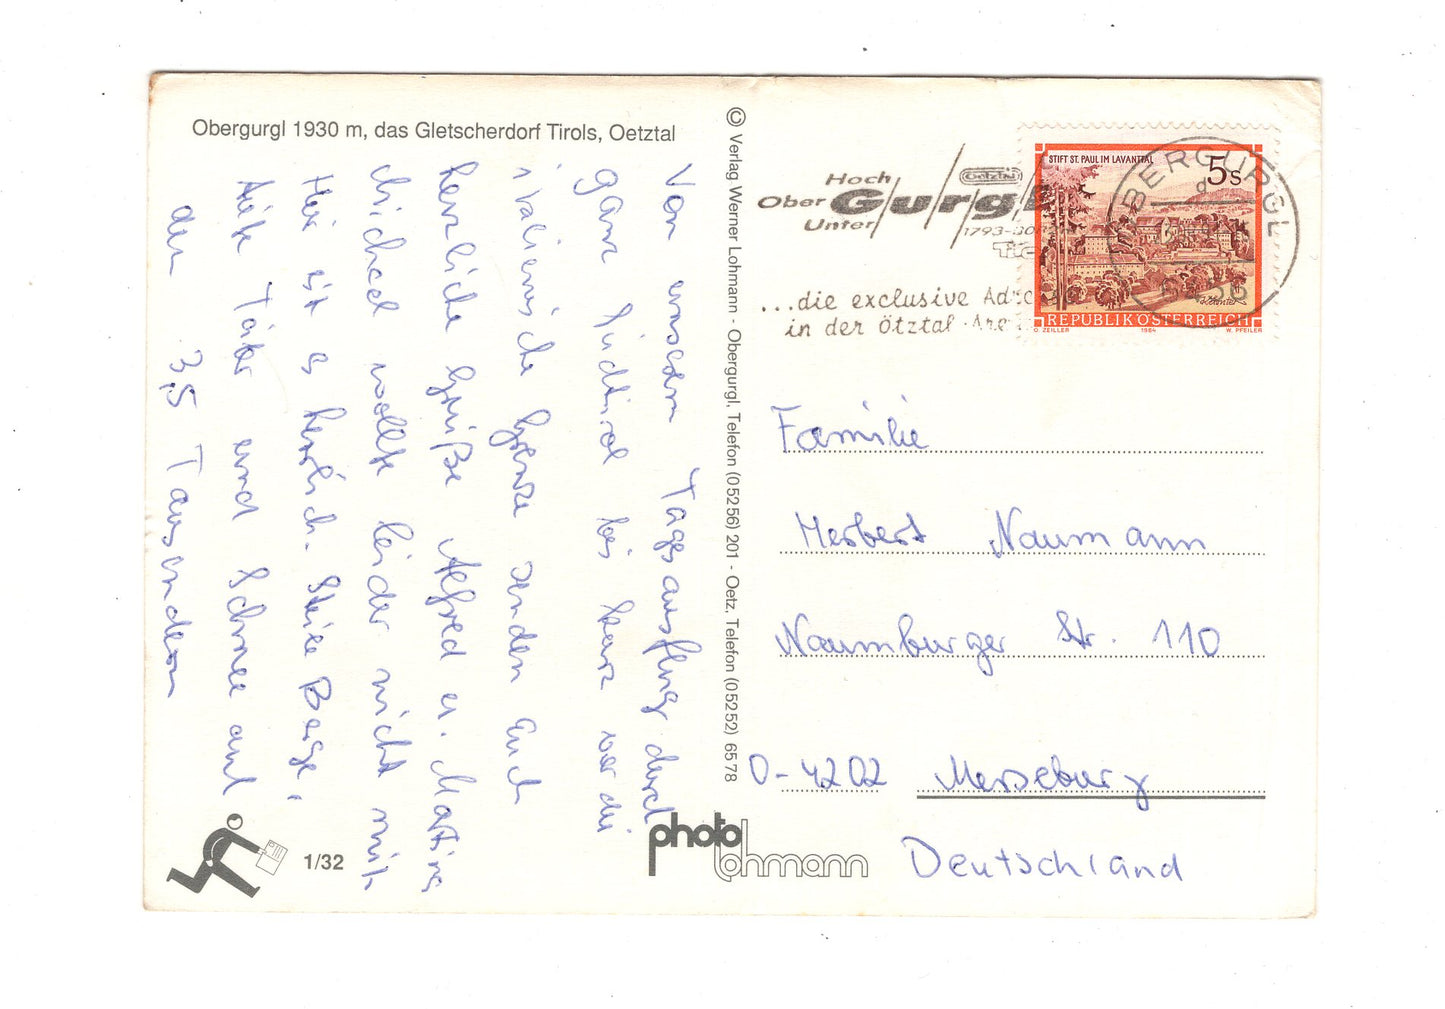 Obergurgl 1930 m, das Gletscherdorf Tirols, Oetztal
Von unserem Tagesausflug durch
ganz Südtirol bis kurz vor die
italienische Grenze senden Euch
herzliche Grüße Alfred u. Martina
Michael wollte leider nicht mit
Hier ist es herrlich. Steile Berge,
tiefe Täler und Schnee auf
den 3,5 Tausendern
1/32
© Verlag Werner Lohmann - Obergurgl, Telefon (05256) 201 - Oetz, Telefon (05252) 6578
photo
lohmann
Hoch
Ober Gurgl
Unter
Oetztal
1793-30
...die exclusive
in der Ötztal
OBERGURGL
6456
STIFT ST. PAUL IM LAVANTTAL
5 S
REPUBLIK ÖSTERREICH
O. ZEILLER 1984 W. PFEILER
Familie
Herbert Naumann
Naumburger Str. 110
O-4202 Merseburg
Deutschland